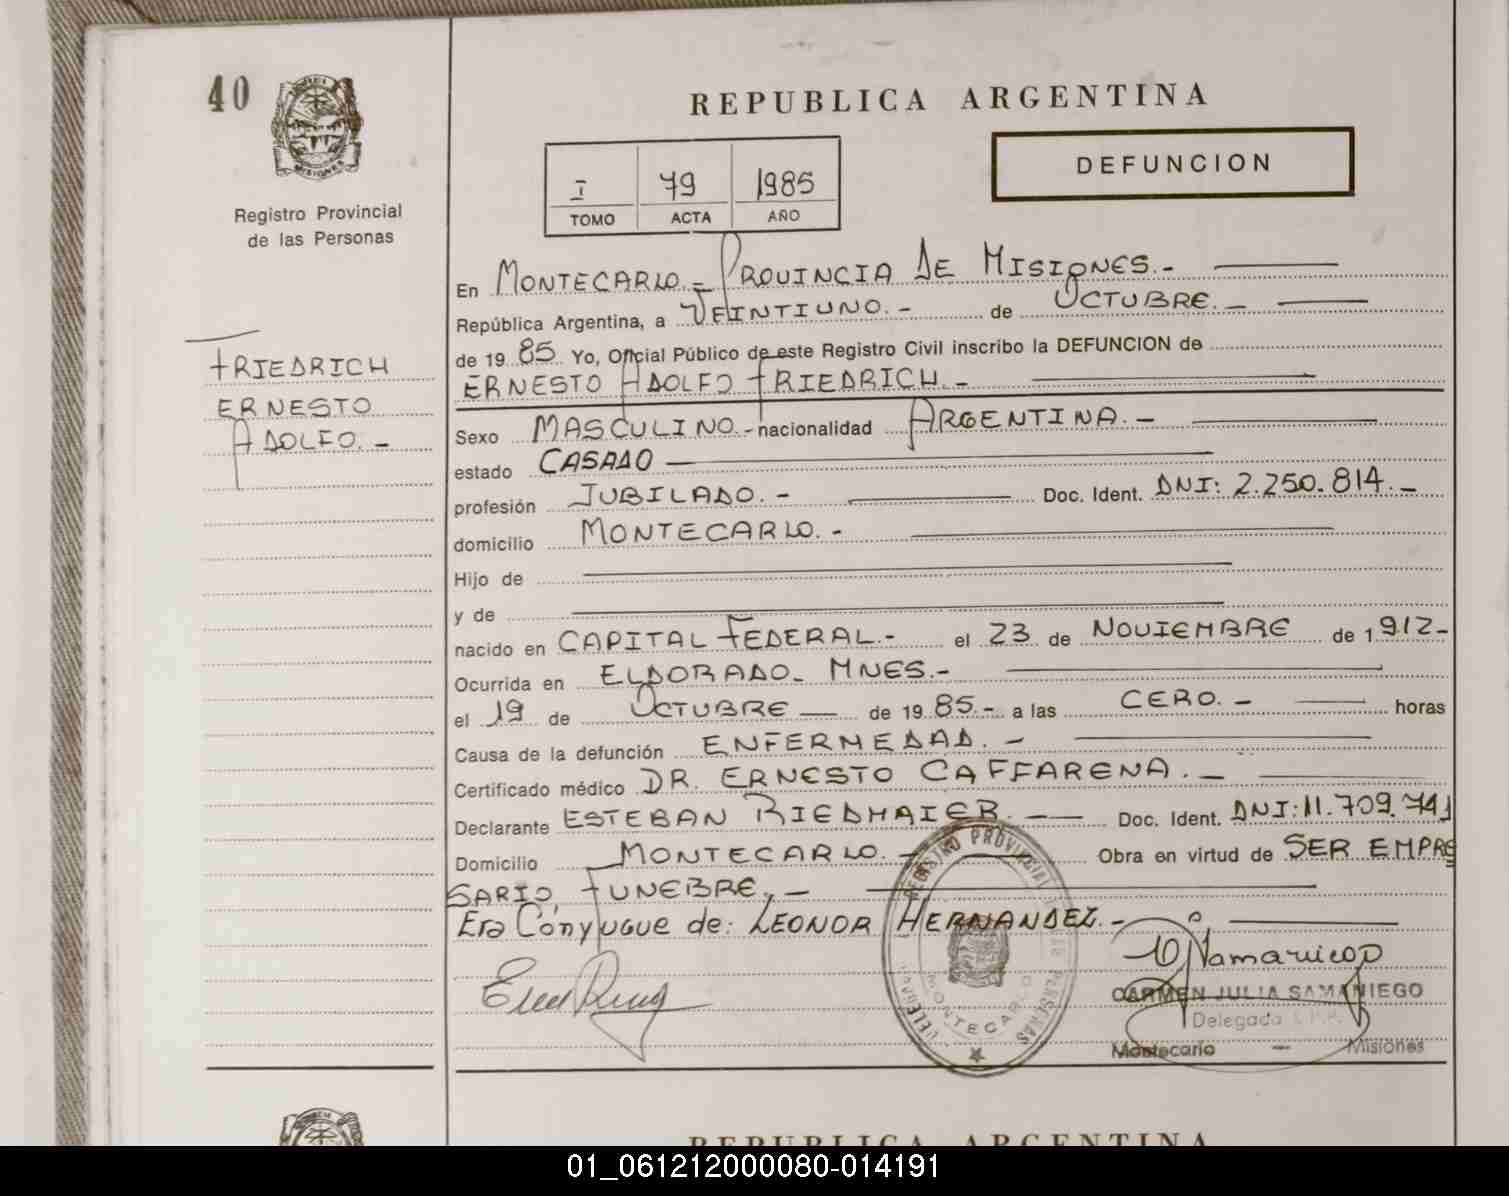 40
MISIONES
Registro Provincial
de las Personas
FRIEDRICH
ERNESTO
ADOLFO.-
REPUBLICA ARGENTINA
I 79 1985
TOMO ACTA AÑO
DEFUNCION
En MONTECARLO.- PROVINCIA DE MISIONES.-
República Argentina, a VEINTIUNO.- de OCTUBRE.-
de 1985 Yo, Oficial Público de este Registro Civil inscribo la DEFUNCION de
ERNESTO ADOLFO FRIEDRICH.-
Sexo MASCULINO.- nacionalidad ARGENTINA.-
estado CASADO
profesión JUBILADO.- Doc. Ident. DNI: 2.250.814.-
domicilio MONTECARLO.-
Hijo de
y de
nacido en CAPITAL FEDERAL.- el 23 de NOVIEMBRE de 1912-
Ocurrida en ELDORADO- MNES.-
el 19 de OCTUBRE de 1985.- a las CERO.- horas
Causa de la defunción ENFERMEDAD.-
Certificado médico DR. ERNESTO CAFFARENA.-
Declarante ESTEBAN RIEDMAIER.- Doc. Ident. DNI: 11.709.741
Domicilio MONTECARLO.- Obra en virtud de SER EMPRE
SARIO, FUNEBRE,-
Era Cónyugue de: LEONOR HERNANDEZ.-
REGISTRO PROVINCIAL DE LAS PERSONAS
MONTECARLO
CARMEN JULIA SAMANIEGO
Delegada
Montecarlo - Misiones
REPUBLICA ARGENTINA
01_061212000080-014191